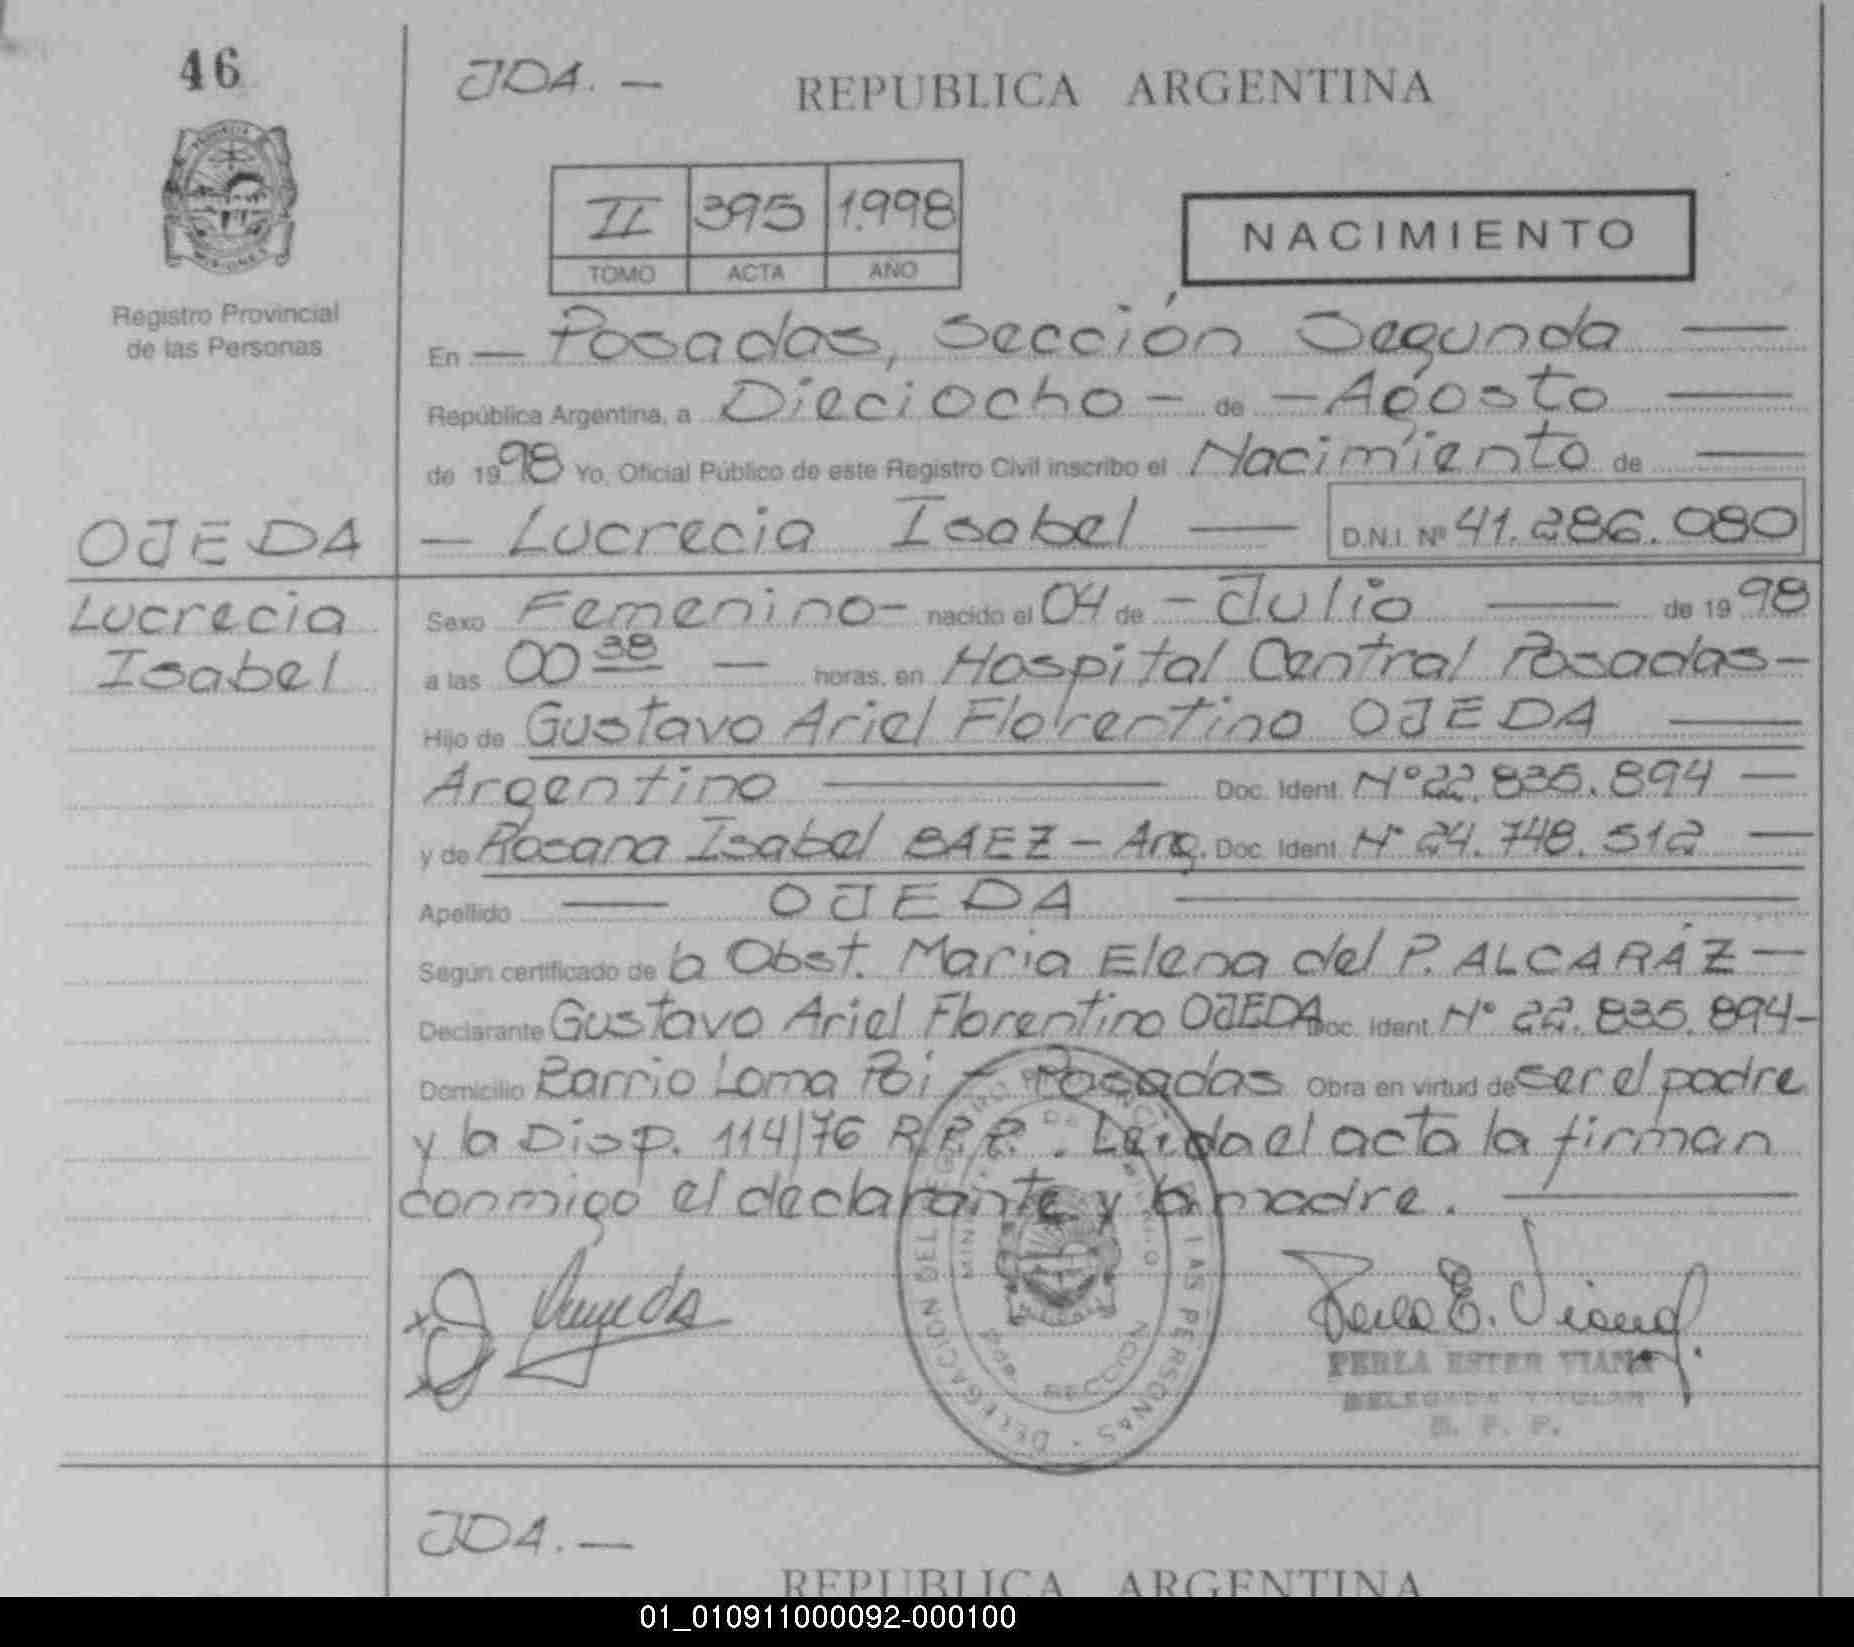 46
JDA. —
REPUBLICA ARGENTINA
II 395 1.998
TOMO ACTA AÑO
NACIMIENTO
Registro Provincial
de las Personas
En — Posadas, Sección Segunda —
República Argentina, a Dieciocho - de - Agosto —
de 1998 Yo, Oficial Público de este Registro Civil inscribo el Nacimiento de —
OJEDA — Lucrecia Isabel — D.N.I. Nº 41.286.080
Lucrecia Sexo Femenino - nacido el 04 de - Julio — de 1998
Isabel a las 00 38 — horas, en Hospital Central Posadas -
Hijo de Gustavo Ariel Florentino OJEDA —
Argentino — Doc. Ident. Nº 22.835.894 —
y de Rosana Isabel BAEZ - Arg. Doc. Ident. Nº 24.748.512 —
Apellido — OJEDA —
Según certificado de la Obst. Maria Elena del P. ALCARÁZ —
Declarante Gustavo Ariel Florentino OJEDA Doc. Ident. Nº 22.835.894 -
Domicilio Barrio Loma Poi - Posadas Obra en virtud de ser el padre
y la Disp. 114/76 R.P.P. . Leida el acta la firman
conmigo el declarante y la madre. —
DELEGACION DEL REGISTRO PROVINCIAL DE LAS PERSONAS
SECCION
Perla E. Viana
PERLA ESTER VIANA
DELEGADA TITULAR
R. P. P.
JDA. —
REPUBLICA ARGENTINA
01_010911000092-000100